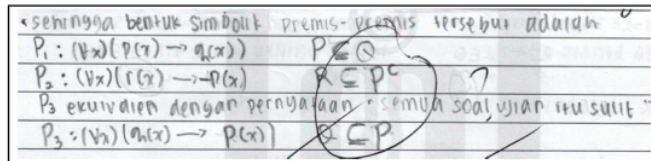 • sehingga bentuk simbolik premis-premis tersebut adalah
P₁ : (∀x)(p(x) → q(x)) P ⊆ Q
P₂ : (∀x)(r(x) → ~p(x) R ⊆ Pᶜ
P₃ ekuivalen dengan pernyataan "semua soal ujian itu sulit" ?
P₃ : (∀x)(q(x) → p(x)) Q ⊆ P